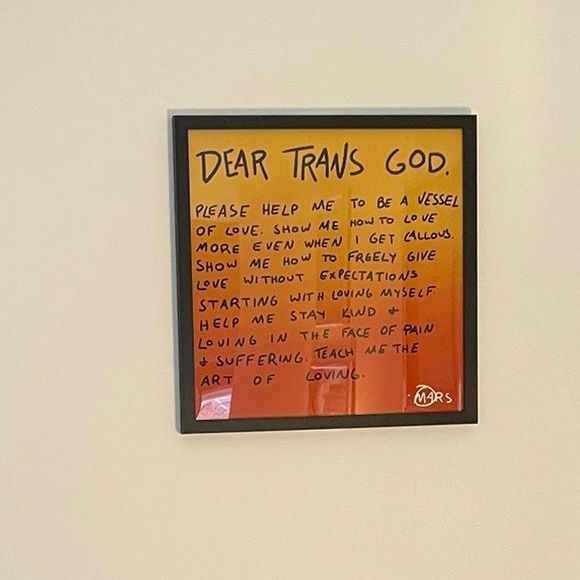 DEAR TRANS GOD.
PLEASE HELP ME TO BE A VESSEL
OF LOVE. SHOW ME HOW TO LOVE
MORE EVEN WHEN I GET CALLOUS.
SHOW ME HOW TO FREELY GIVE
LOVE WITHOUT EXPECTATIONS
STARTING WITH LOVING MYSELF.
HELP ME STAY KIND &
LOVING IN THE FACE OF PAIN
& SUFFERING. TEACH ME THE
ART OF LOVING.
M4RS